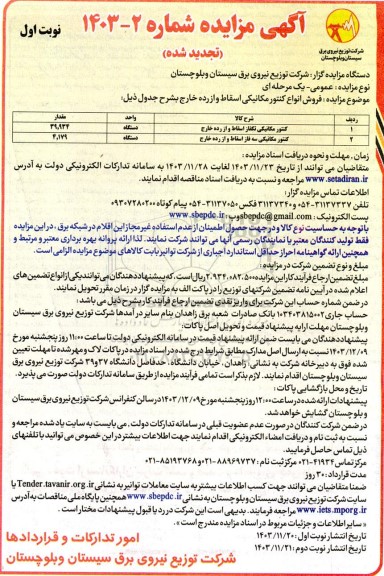 آگهی مزایده شماره ۲-۱۴۰۳
(تجدید شده)
نوبت اول
شرکت توزیع نیروی برق
سیستان وبلوچستان
دستگاه مزایده گزار: شرکت توزیع نیروی برق سیستان وبلوچستان
نوع مزایده: عمومی- یک مرحله ای
موضوع مزایده: فروش انواع کنتور مکانیکی اسقاط و از رده خارج بشرح جدول ذیل:
ردیف شرح کالا واحد مقدار
۱ کنتور مکانیکی تکفاز اسقاط و از رده خارج دستگاه ۳۹,۹۳۴
۲ کنتور مکانیکی سه فاز اسقاط و از رده خارج دستگاه ۴,۱۷۹
زمان، مهلت و نحوه دریافت اسناد مزایده:
متقاضیان می توانند از تاریخ ۱۴۰۳/۱۱/۲۳ لغایت ۱۴۰۳/۱۱/۲۸ به سامانه تدارکات الکترونیکی دولت به آدرس
www.setadiran.ir مراجعه و نسبت به دریافت اسناد مناقصه اقدام نمایند.
اطلاعات تماس مزایده گزار:
تلفن ۳۱۱۳۷۳۳۷-۰۵۴ و ۳۱۱۳۷۳۴۰-۰۵۴ فکس ۳۱۱۳۷۰۵۰-۰۵۴ پیام کوتاه ۰۹۳۰۷۲۸۰۲۰۰
پست الکترونیک: sbepdc@gmail.com و www.sbepdc.ir
با توجه به حساسیت نوع کالا و در جهت حصول اطمینان از عدم استفاده غیر مجاز این اقلام در شبکه برق، در این مزایده
فقط تولید کنندگان معتبر یا نمایندگان رسمی آنها می توانند شرکت نمایند. لذا ارائه پروانه بهره برداری معتبر و مرتبط و
همچنین ارائه گواهینامه احراز حداقل استاندارد اجباری از شرکت توانیر بابت کالاهای موضوع مزایده الزامی است.
مبلغ و نوع تضمین شرکت در مزایده:
مبلغ تضمین ارجاع فرآیند کار این مزایده ۲.۹۳۴.۰۸۲.۵۰۰ ریال است، که پیشنهاد دهندگان می توانند یکی از انواع تضمین های
اعلام شده در آیین نامه تضمین شرکتهای توزیع را در پاکت الف به مزایده گزار در زمان مقرر تحویل نمایند.
در ضمن شماره حساب این شرکت برای واریز نقدی تضمین ارجاع فرآیند کار بشرح ذیل می باشد:
حساب جاری ۰۱۰۳۴۰۳۸۱۵۰۰۲ بانک صادرات شعبه برق زاهدان بنام سایر درآمدها شرکت توزیع نیروی برق سیستان
وبلوچستان مهلت ارایه پیشنهاد قیمت و تحویل اصل پاکات:
پیشنهاددهندگان می بایست ضمن ارائه پیشنهاد قیمت در سامانه الکترونیکی دولت تا ساعت ۱۱:۰۰ روز پنجشنبه مورخ
۱۴۰۳/۱۲/۰۹ نسبت به ارسال اصل مدارک مطابق شرایط درج شده در اسناد مزایده در پاکات لاک و مهر شده تا مهلت تعیین
شده فوق به دبیرخانه شرکت به نشانی زاهدان، خیابان دانشگاه، حدفاصل دانشگاه ۳۷و۳۹ شرکت توزیع نیروی برق
سیستان وبلوچستان اقدام نمایند. لازم بذکر است تمامی فرآیند مزایده از طریق سامانه تدارکات دولت صورت می پذیرد.
تاریخ و محل بازگشایی پاکات:
پیشنهادات ارائه شده در ساعت ۱۲:۰۰ روز پنجشنبه مورخ ۱۴۰۳/۱۲/۰۹ در سالن کنفرانس شرکت توزیع نیروی برق سیستان
و بلوچستان گشایش خواهد شد.
در ضمن شرکت کنندگان در صورت عدم عضویت قبلی در سامانه تدارکات دولت، می بایست به سایت یاد شده مراجعه و
نسبت به ثبت نام و دریافت امضاء الکترونیکی اقدام نمایند جهت اطلاعات بیشتر در این خصوص می توانید با تلفنهای
ذیل تماس حاصل فرمایید.
مرکز تماس ۴۱۹۳۴-۰۲۱ مرکز ثبت نام: ۸۸۹۶۹۷۳۷-۰۲۱ و ۸۵۱۹۳۷۶۸-۰۲۱
مدت قرارداد: ۳۰ روز
ضمنا متقاضیان می توانند جهت کسب اطلاعات بیشتر به سایت معاملات توانیر به نشانی Tender.tavanir.org.ir یا
سایت شرکت توزیع نیروی برق سیستان وبلوچستان به نشانی www.sbepdc.ir همچنین پایگاه ملی مناقصات به آدرس
www.iets.mporg.ir مراجعه فرمایند. بدیهی است این شرکت در رد یا قبول پیشنهادات مختار است.
« سایر اطلاعات و جزئیات مربوط در اسناد مزایده مندرج است »
تاریخ انتشار نوبت اول: ۱۴۰۳/۱۱/۲۰
تاریخ انتشار نوبت دوم: ۱۴۰۳/۱۱/۲۱
امور تدارکات و قراردادها
شرکت توزیع نیروی برق سیستان وبلوچستان